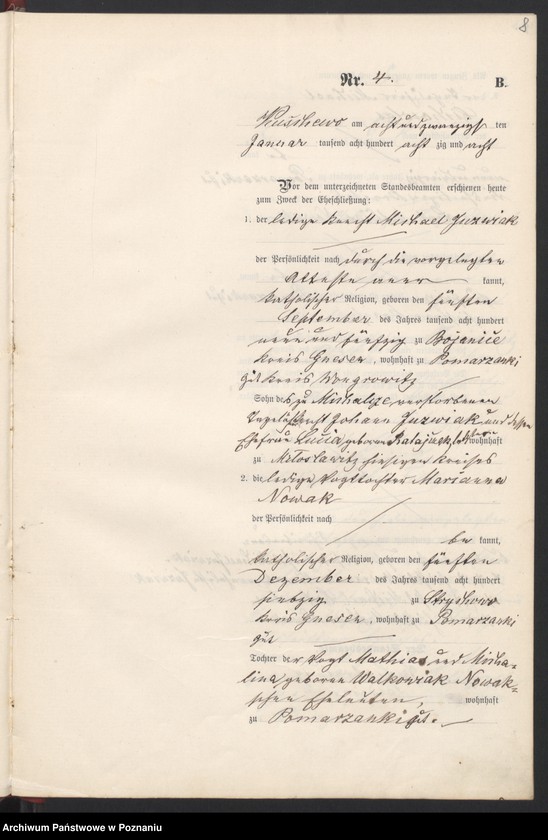 8
Nr. 4. B.
am achtundzwanzigsten
Januar tausend acht hundert acht zig und acht
Vor dem unterzeichneten Standesbeamten erschienen heute
zum Zweck der Eheschließung:
1. der ledige Knecht Michael Juzwiak
der Persönlichkeit nach durch die vorgelegten
Atteste aner kannt,
katholischer Religion, geboren den fünften
September des Jahres tausend acht hundert
neun und fünfzig zu Bojanice
Kreis Gnesen, wohnhaft zu Pomarzanki
Gut Kreis Wongrowitz
Sohn des zu Michalcze verstorbenen
Johann Juzwiak und dessen
Ehefrau Lucia geborene wohnhaft
zu hiesigen Kreises
2. die ledige Vogttochter Marianna
Nowak
der Persönlichkeit nach
be kannt,
katholischer Religion, geboren den fünften
Dezember des Jahres tausend acht hundert
siebzig zu Strychowo
Kreis Gnesen, wohnhaft zu Pomarzanki
Gut
Tochter der Vogt Mathias und Micha-
lina geboren Walkowiak Nowak-
schen Eheleuten, wohnhaft
zu Pomarzanki Gut.
Archiwum Państwowe w Poznaniu